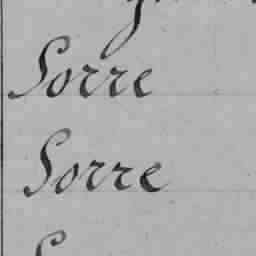 Sorre
Sorre